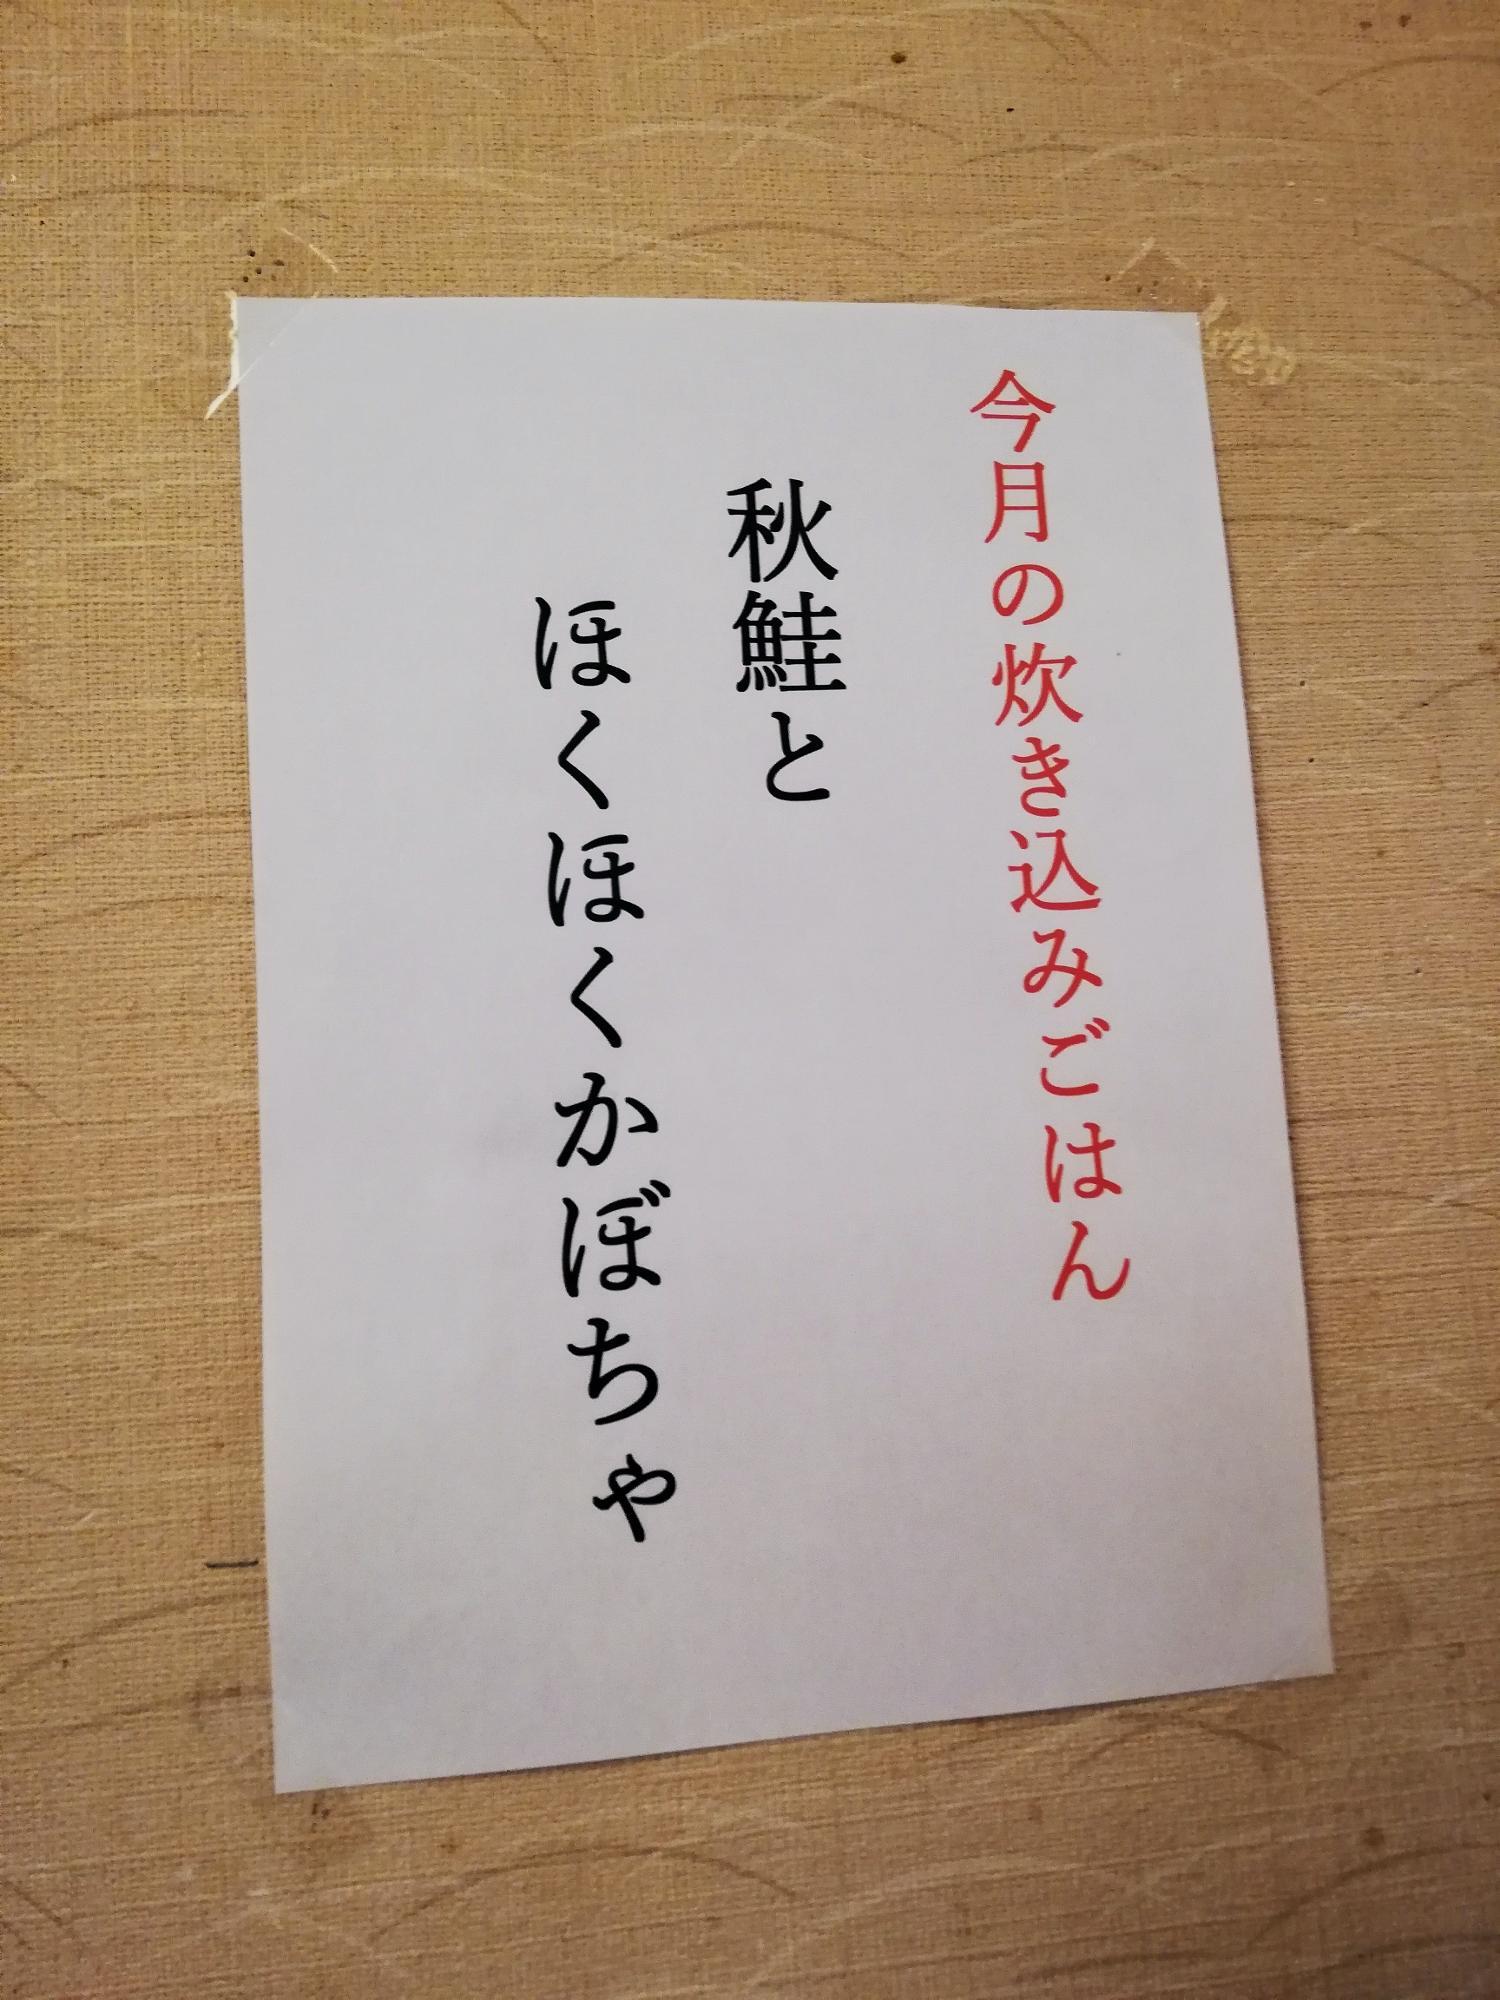 今月の炊き込みごはん
秋鮭と
ほくほくかぼちゃ